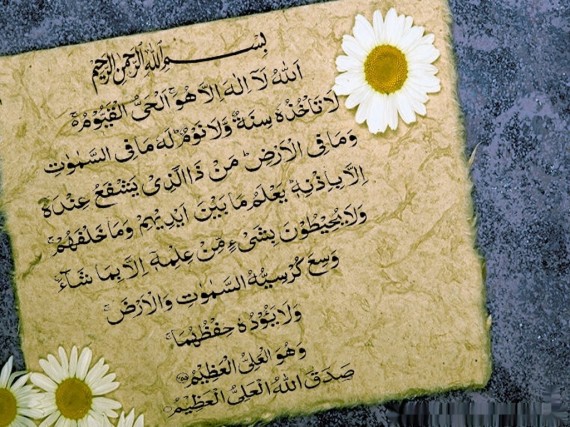 بِسْمِ اللهِ الرَّحْمٰنِ الرَّحِيْمِ
اَللهُ لَآ اِلٰهَ اِلَّا هُوَ ۚ اَلْحَىُّ الْقَيُّوْمُ ۚ
لَا تَاْخُذُهٗ سِنَةٌ وَّلَا نَوْمٌ ؕ لَهٗ مَا فِى السَّمٰوٰتِ
وَمَا فِى الْاَرْضِ ؕ مَنْ ذَا الَّذِىْ يَشْفَعُ عِنْدَهٗۤ
اِلَّا بِاِذْنِهٖ ؕ يَعْلَمُ مَا بَيْنَ اَيْدِيْهِمْ وَمَا خَلْفَهُمْ ۚ
وَلَا يُحِيْطُوْنَ بِشَىْءٍ مِّنْ عِلْمِهٖۤ اِلَّا بِمَا شَآءَ ۚ
وَسِعَ كُرْسِيُّهُ السَّمٰوٰتِ وَالْاَرْضَ ۚ
وَلَا يَئُوْدُهٗ حِفْظُهُمَا ۚ
وَهُوَ الْعَلِىُّ الْعَظِيْمُ ﴿۲۵۵﴾
صَدَقَ اللهُ الْعَلِىُّ الْعَظِيْمُ